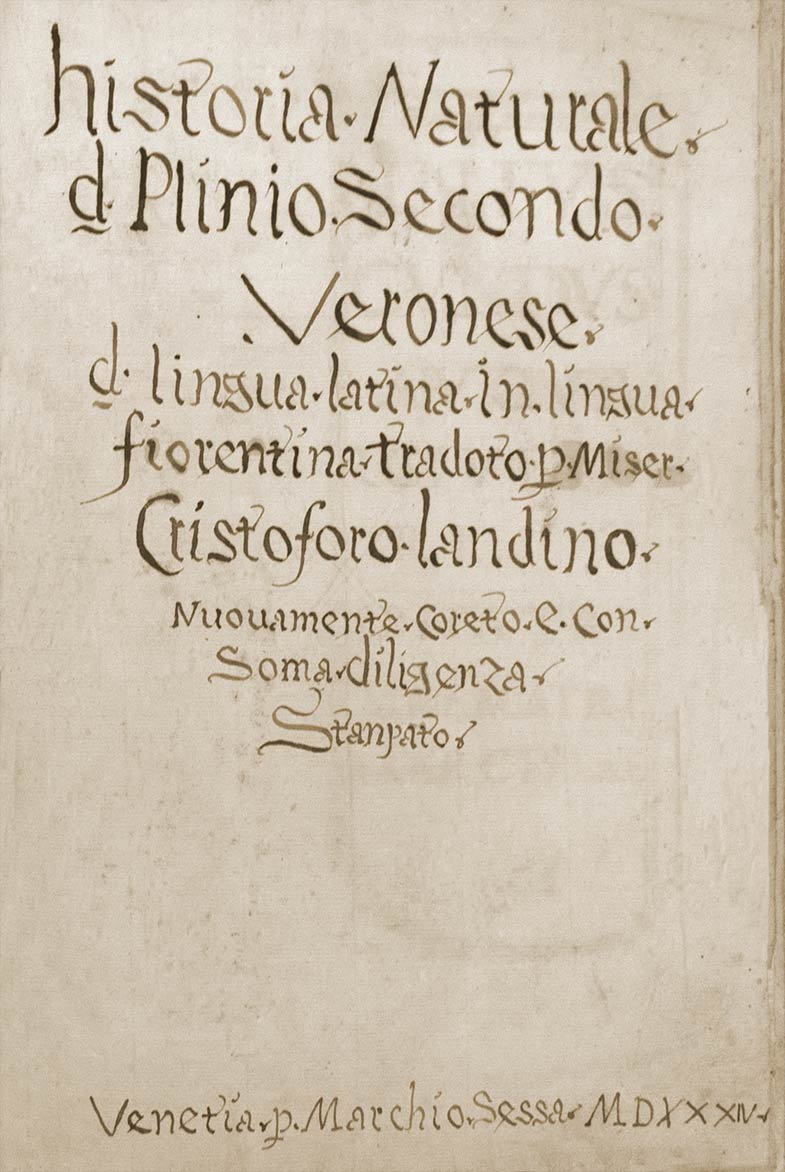 historia · Naturale ·
d · Plinio · Secondo ·
Veronese ·
d · lingua · latina · in · lingua ·
fiorentina · tradoto · p · Miser ·
Cristoforo · landino ·
Nuouamente · Coreto · e · Con ·
Soma · diligenza ·
Stanpato ·
Venetia · p · Marchio · Sessa · MDXXXIV ·